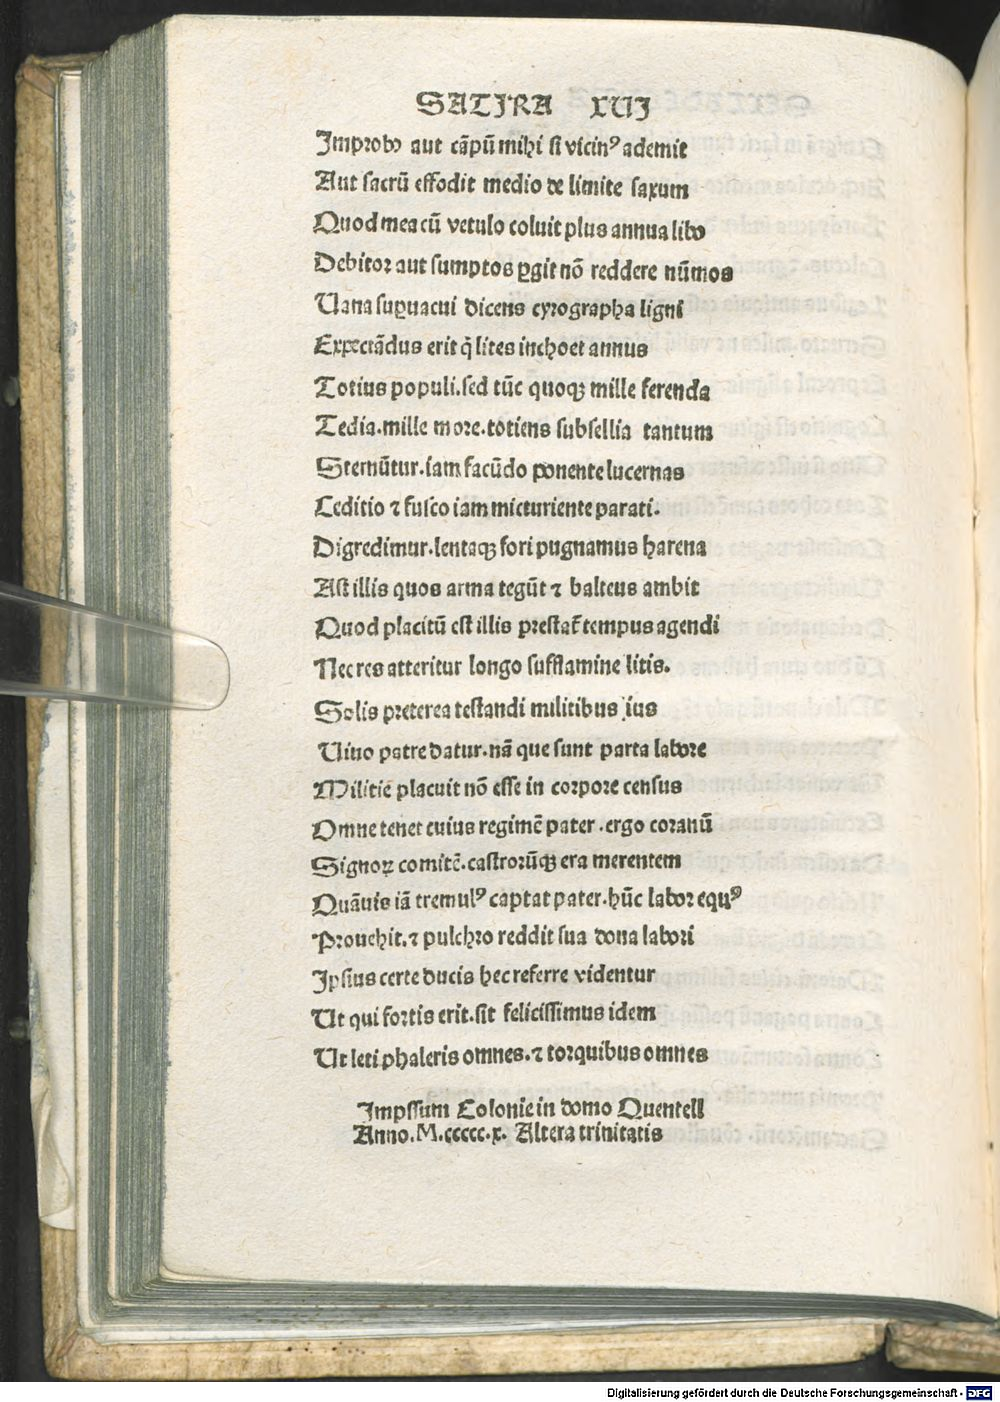 SATIRA XVI
Improbꝰ aut cāpū mihi si vicinꝰ ademit
Aut sacrū effodit medio de limite saxum
Quod mea cū vetulo coluit plus annua libo
Debitor aut sumptos ꝑgit nō reddere nūmos
Uana suꝑuacui dicens cyrographa ligni
Expectādus erit q̄ lites inchoet annus
Totius populi. sed tūc quoqꝫ mille ferenda
Tedia. mille more. totiens subsellia tantum
Sternūtur. iam facūdo ponente lucernas
Ceditio ⁊ fusco iam micturiente parati.
Digredimur. lentaqꝫ fori pugnamus harena
Ast illis quos arma tegūt ⁊ balteus ambit
Quod placitū est illis prestat̄ tempus agendi
Nec res atteritur longo sufflamine litis.
Solis preterea testandi militibus ius
Uiuo patre datur. nā que sunt parta labore
Militie placuit nō esse in corpore census
Omne tenet cuius regimē pater. ergo coranū
Signoꝝ comitē. castrorūqꝫ era merentem
Quāuis iā tremulꝰ captat pater. hūc labor equꝰ
Prouehit. ⁊ pulchro reddit sua dona labori
Ipsius certe ducis hec referre videntur
Ut qui fortis erit. sit felicissimus idem
Ut leti phaleris omnes. ⁊ torquibus omnes
Impssum Colonie in domo Quentell
Anno. M.ccccc.x. Altera trinitatis
Digitalisierung gefördert durch die Deutsche Forschungsgemeinschaft - DFG